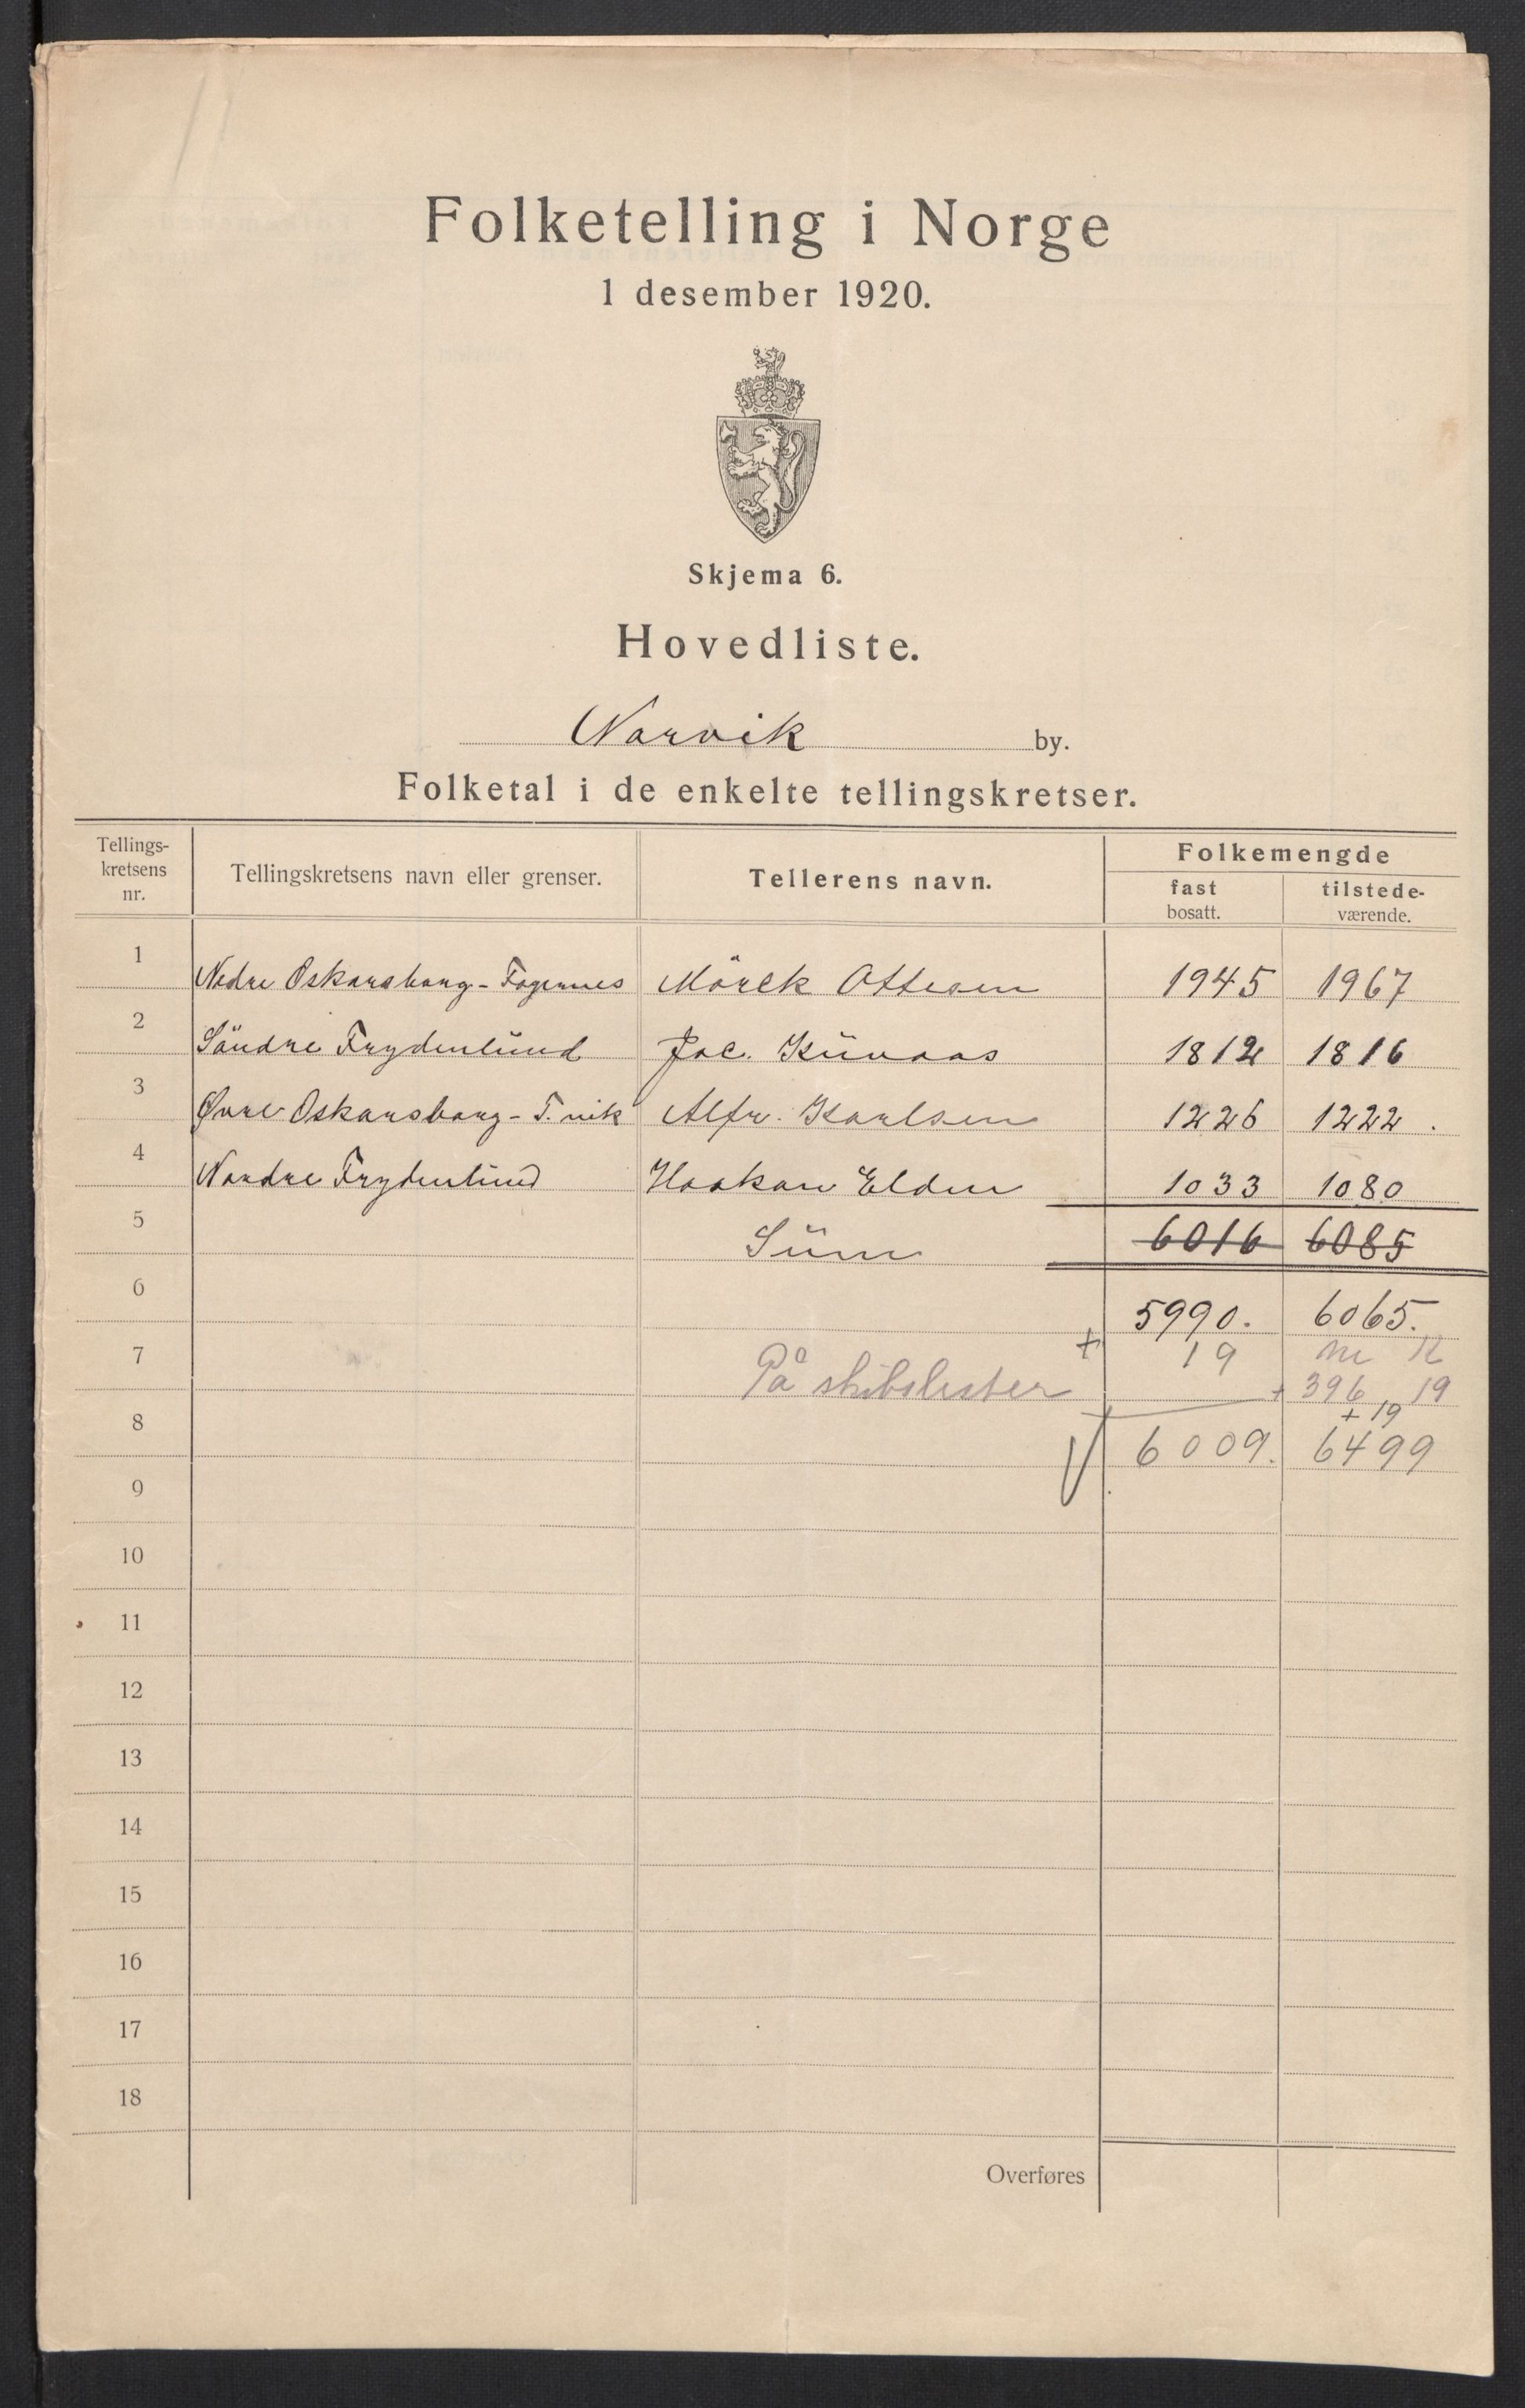 Folketelling i Norge
1 desember 1920.
Skjema 6.
Hovedliste.
Narvik by.
Folketal i de enkelte tellingskretser.
Tellings-
kretsens
nr.
Tellingskretsens navn eller grenser.
Tellerens navn.
Folkemengde
fast
bosatt.
tilstede-
værende.
1 Nedre Oskarsborg - Fagernes Mörck Ottesen 1945 1967
2 Söndre Frydenlund Jac. 1812 1816
3 Øvre Oskarsborg - T.vik Alfr. Karlsen 1226 1222.
4 Nordre Frydenlund Haakon Elden 1033 1080
5 Sum 6016 6085
6 5990. 6065.
7 + 19 m k
På skibslister + 396 19
+ 19
8 6009. 6499
9
10
11
12
13
14
15
16
17
18
Overføres